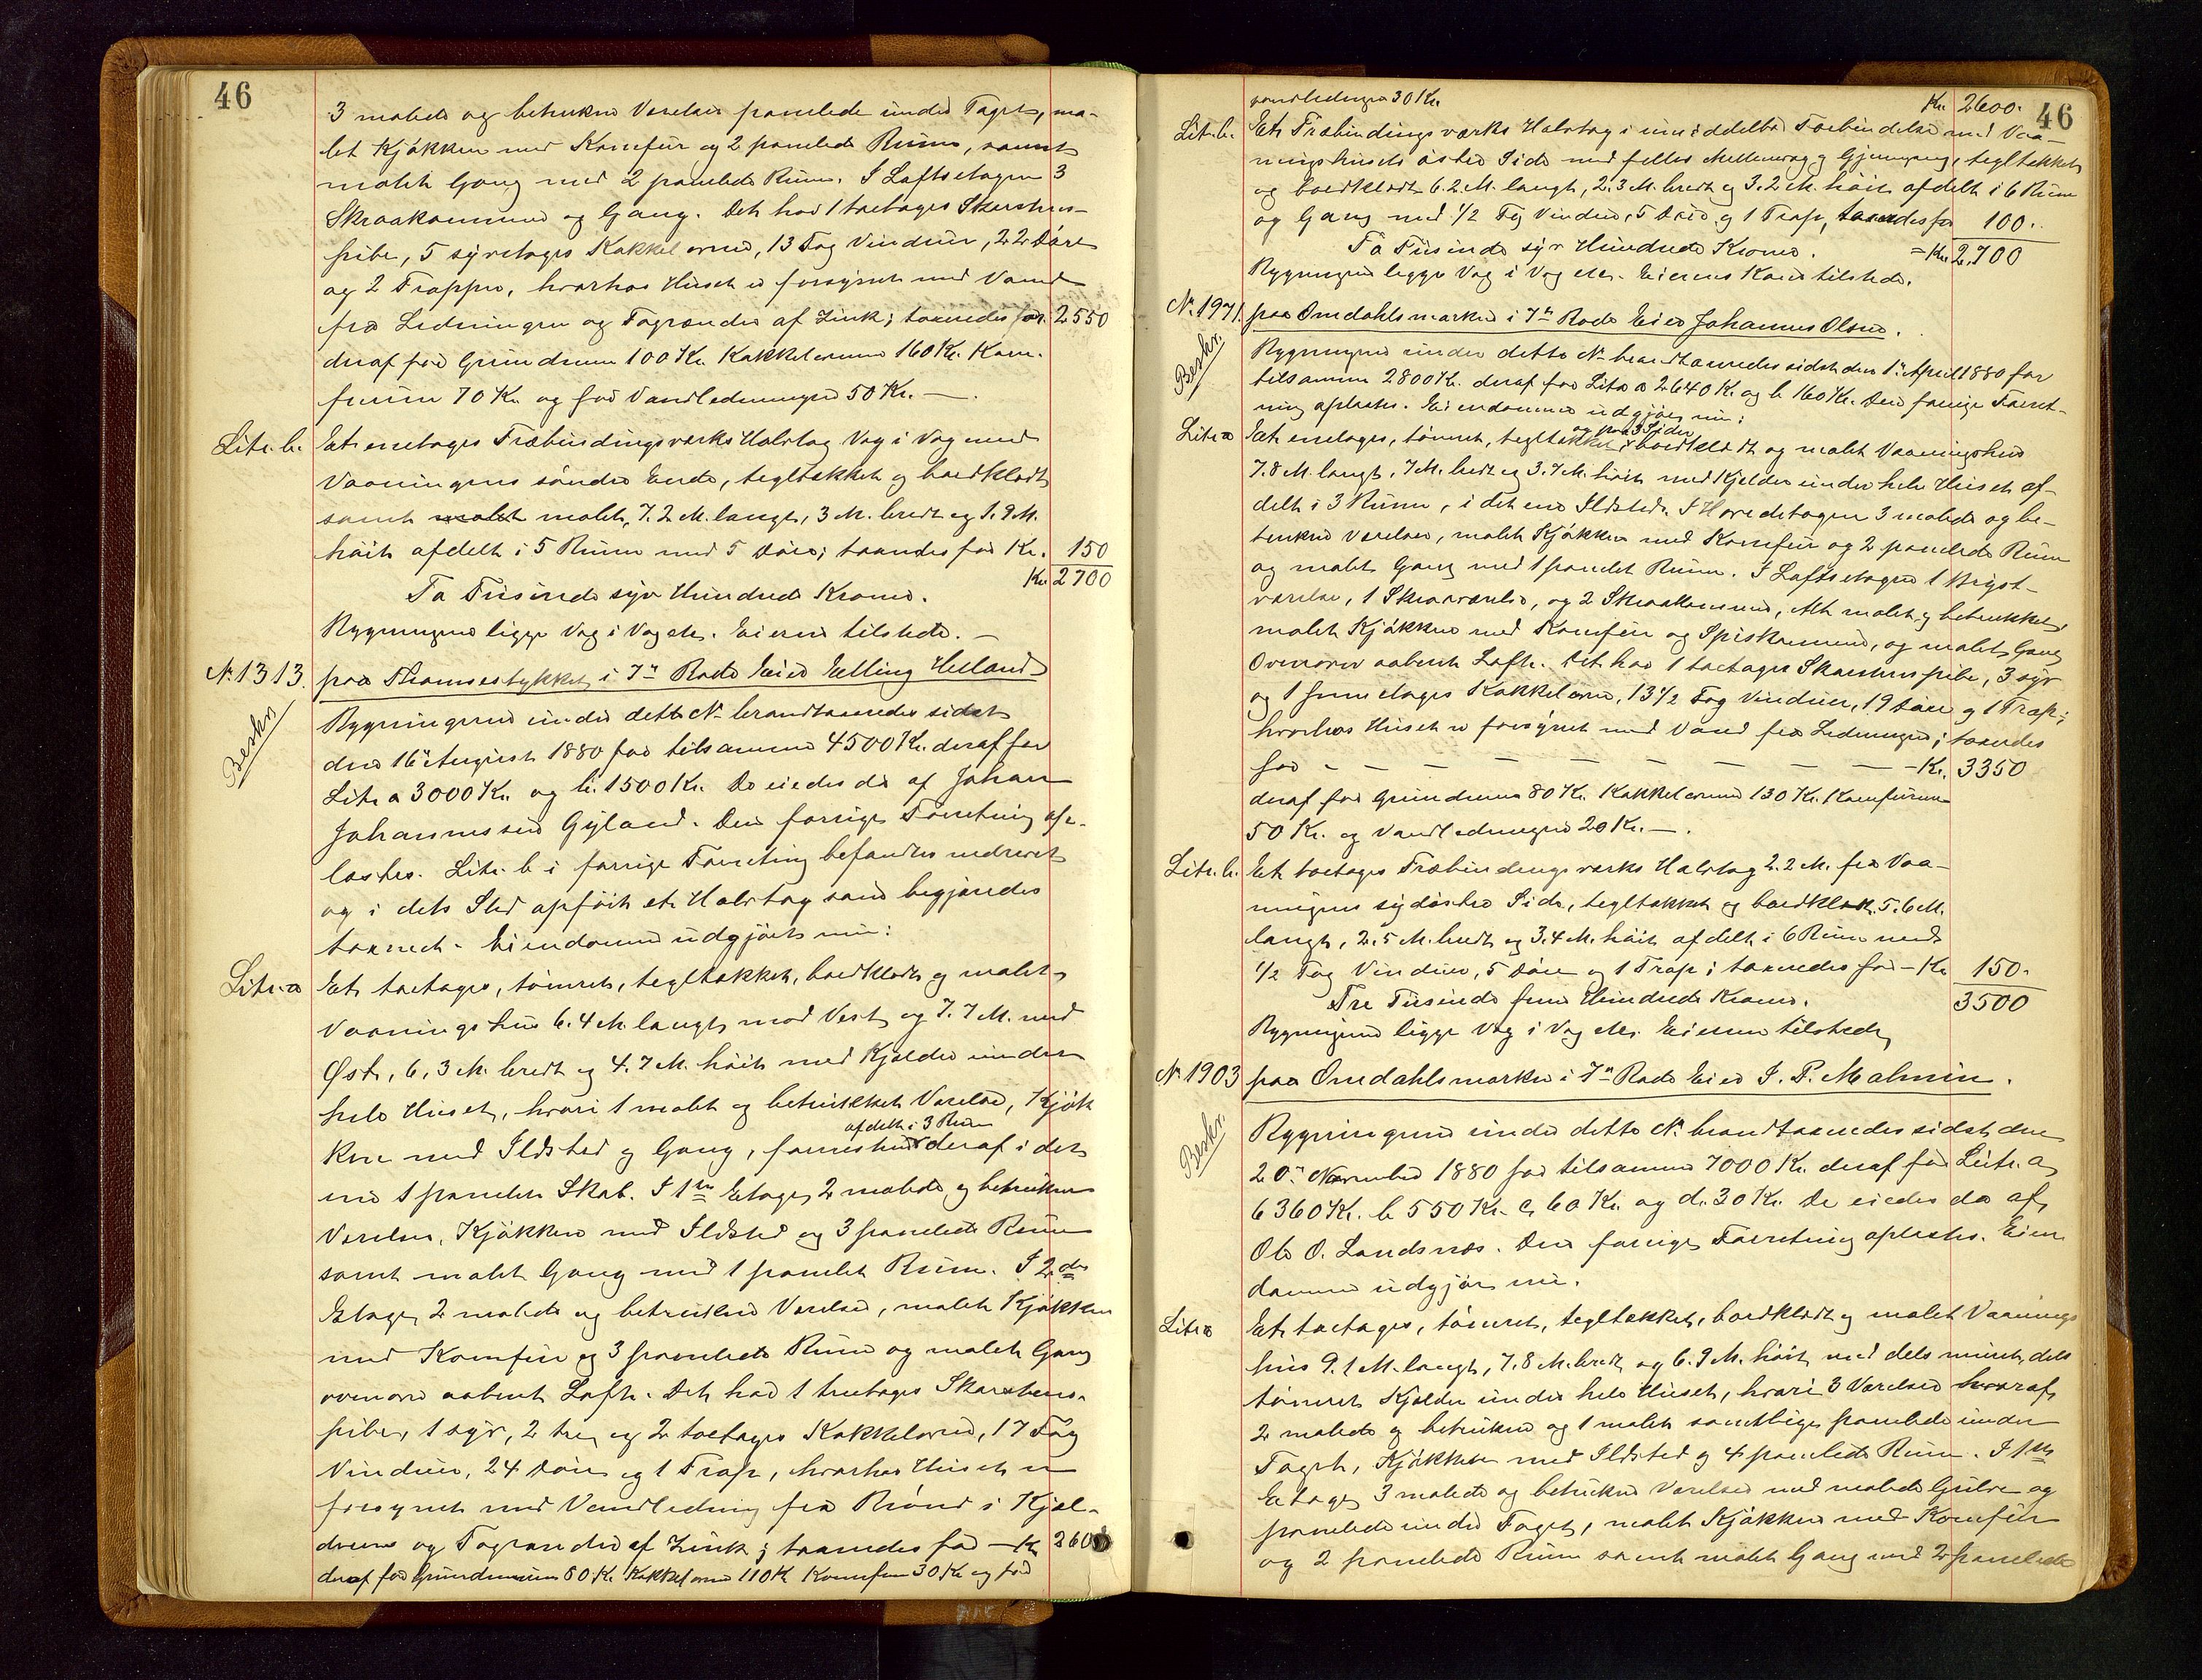 46
3 malede og betrukne Værelser panelede under Taget, ma-
let Kjøkken med Komfur og 2 panelede Rum, samt
malet Gang med 2 panelede Rum. I Loftsetagen 3
Skraakammere og Gang. Det har 1 toetages Skorstens-
pibe, 5 syvetages Kakkelovne, 13 Fag Vinduer, 22 Døre
og 2 Trapper, hvorhos Huset er forsynet med Vand
fra Ledningen og Tagrender af Zink; taxeredes for 2550
deraf for Grundmuren 100 Kr. Kakkelovnene 160 Kr. Kom-
furene 70 Kr. og for Vandledningen 50 Kr. —.
Litr. b. Et enetages Træbindingsværks Halvtag Væg i Væg med
Vaaningens søndre Ende, tegltækket og bordklædt
samt malet malet, 7.2 M. langt, 3 M. bredt og 1.9 M.
høit afdelt i 5 Rum med 5 Døre; taxeredes for Kr. 150
Kr 2700
To Tusinde syv Hundrede Kroner.
Bygningerne ligger Væg i Væg etc. Eieren tilstede. —
No 1313. paa Thomsestykket i 7de Rode Eier Elling Helland
Beskr. Bygningerne under dette No brandtaxeredes sidst
den 16de August 1880 for tilsammen 4500 Kr. deraf for
Litr a 3000 Kr. og b. 1500 Kr. De eiedes da af Johan
Johannessen Gyland. Den forrige Forretning op-
læstes. Litr. b i forrige Forretning befandtes nedrevet
og i dets Sted opført et Halvtag som begjæredes
taxeret. Eiendommen udgjørs nu:
Litr. a Et toetages, tømret, tegltækket, bordklædt og malet
Vaaningshus 6.4 M. langt mod Vest og 7.7 M. mod
Øst, 6,3 M. bredt og 4.7 M. høit med Kjelder under
hele Huset, hvori 1 malet og betrukket Værelse, Kjøk
afdelt i 3 Rum
ken med Ildsted og Gang, forresten deraf i det
ene 1 panelet Skab. I 1ste Etage, 2 malede og betrukne
Værelser, Kjøkken med Ildsted og 3 panelede Rum
samt malet Gang med 1 panelet Rum. I 2den
Etage, 2 malede og betrukne Værelser, malet Kjøkken
med Komfur og 3 panelede Rum og malet Gang
ovenover aabent Loft. Det har 1 treetages Skorstens-
pibe, 1 syv, 2 tre, og 2 toetages Kakkelovne, 17 Fag
Vinduer, 24 Døre og 1 Trap, hvorhos Huset er
forsynet med Vandledning fra Brønd i Kjel-
deren og Tagrender af Zink; taxeredes for — Kr 2600
deraf for Grundmuren 80 Kr. Kakkelovne 110 Kr Komfur 30 Kr og for
46
vandledningen 30 Kr. Kr. 2600.
Litr. b. Et Træbindingsværks Halvtag i umiddelbar Forbindelse med Vaa-
ningshusets østre Side med fælles Mellemvæg og Gjennemgang, tegltækket
og bordklædt 6.2 M. langt, 2.3 M. bredt og 3.2 M. høit afdelt i 6 Rum
og Gang med 1/2 Fag Vindue, 5 Døre og 1 Trap, taxeredes for 100..
To Tusinde syv Hundrede Kroner. = Kr. 2,700
Bygningerne ligger Væg i Væg etc. Eierens Kone tilstede.
No 1971. paa Omdahlsmarken i 7de Rode Eier Johannes Olsen.
Beskr. Bygningerne under dette No brandtaxeredes sidst den 1ste April 1880 for
tilsammen 2800 Kr. deraf for Litr a 2640 Kr. og b 160 Kr. Den forrige Forret-
ning oplæstes. Eiendommen udgjør nu:
og paa 3 Sider
Litr. a Et enetages, tømret, tegltækket bordklædt og malet Vaaningshus
7.8 M. langt, 7 M. bredt og 3.7 M. høit med Kjelder under hele Huset af-
delt i 3 Rum, i det ene Ildsted. I Hovedetagen 3 malede og be-
trukne Værelser, malet Kjøkken med Komfur og 2 panelede Rum
og malet Gang med 1 panelet Rum. I Loftsetagen 1 Bryst-
værelse, 1 Skraaværelse, og 2 Skraakammere, Alt malet og betrukket
malet Kjøkken med Komfur og Spiskammer, og malet Gang
Ovenover aabent Loft. Det har 1 toetages Skorstenspibe, 3 syv
og 1 femetages Kakkelovne, 13 1/2 Fag Vinduer, 19 Døre og 1 Trap;
hvorhos Huset er forsynet med Vand fra Ledningen; taxeredes
for — — — — — — — — — Kr. 3350
deraf for Grundmuren 80 Kr. Kakkelovnene 130 Kr. Komfurene
50 Kr. og Vandledningen 20 Kr. —.
Litr. b. Et toetages Træbindingsværks Halvtag 2.2 M. fra Vaa-
ningens sydøstre Side, tegltækket og bordklædt. 5.6 M.
langt, 2.5 M. bredt og 3.4 M. høit afdelt i 6 Rum med
1/2 Fag Vinduer, 5 Døre og 1 Trap; taxeredes for — Kr 150.
Tre Tusinde fem Hundrede Kroner. 3500
Bygningerne ligger Væg i Væg etc. Eieren tilstede
No 1903 paa Omdahlsmarken i 7de Rode Eier I. P. Malmin.
Beskr. Bygningerne under dette No. brandtaxeredes sidst den
20de November 1880 for tilsammen 7000 Kr. deraf for Litr. a
6360 Kr. b 550 Kr. c, 60 Kr. og d. 30 Kr. De eiedes da af
Ole O. Landsnæs. Den forrige Forretning oplæstes. Eien-
dommen udgjør nu.
Litr a Et toetages, tømret, tegltækket, bordklædt og malet Vaanings
hus 9.1 M. langt, 7,8 M. bredt, og 6.9 M. høit med dels muret, dels
tømret Kjelder under hele Huset, hvori 3 Værelser hvoraf
2 malede og betrukne og 1 malet samtlige panelede under
Taget, Kjøkken med Ildsted og 4 panelede Rum. I 1ste
Etage 3 malede og betrukne Værelser med malede Gulve og
panelede under Taget, malet Kjøkken med Komfur
og 2 panelede Rum samt malet Gang med 2 panelede